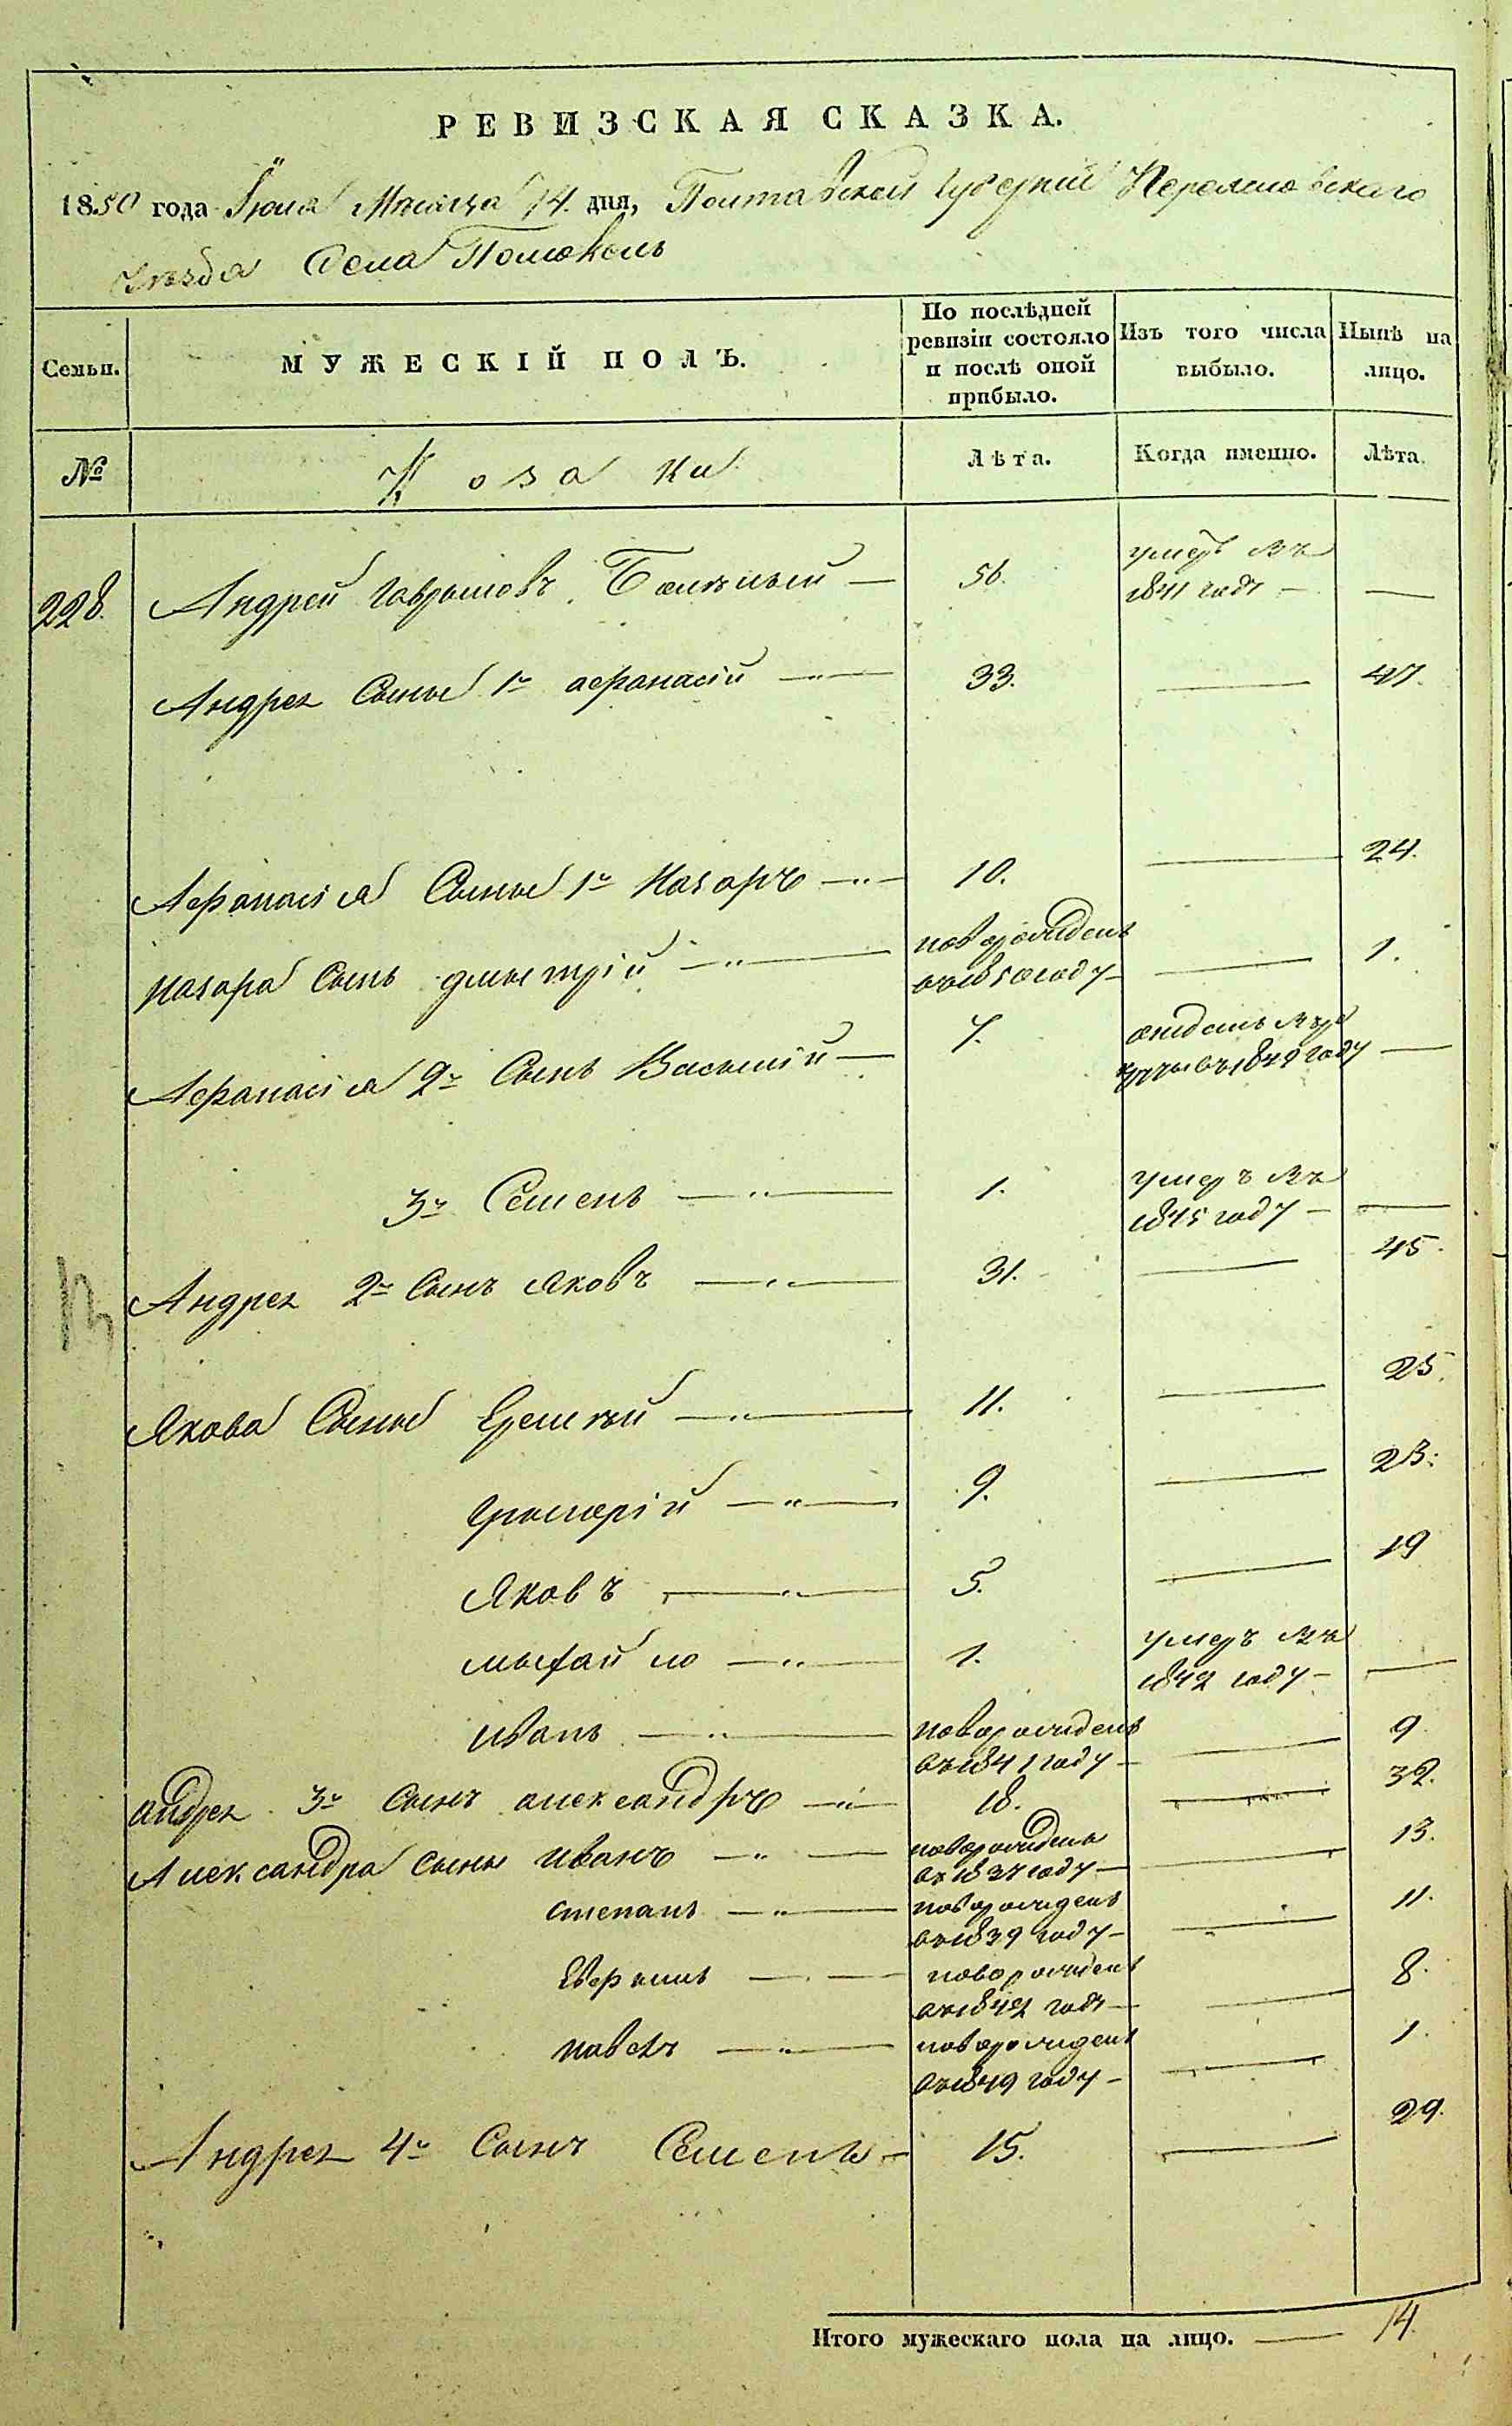 РЕВИЗСКАЯ СКАЗКА.
1850 года Іюля Мѣсяца 14. дня, Полтавской Губерніи Переяславскаго
Уѣзда Села Помокель
Семьи.
МУЖЕСКІЙ ПОЛЪ.
По послѣдней ревизіи состояло и послѣ оной прибыло.
Изъ того числа выбыло.
Нынѣ на лицо.
№
Козаки
Лѣта.
Когда именно.
Лѣта.
228. Андрей Гавриловъ — 56. умеръ въ 1841 году — —
Андрея Сыны 1й Афанасій — 33. — 47.
Афанасія Сыны 1й Назаръ — 10. — 24.
Назара Сынъ Дмытрій — новорожденъ въ 1850 году — — 1.
Афанасія 2й Сынъ Василій — 7. въ 1849 году —
3й Семенъ — 1. умеръ въ 1845 году — —
Андрея 2й Сынъ Яковъ — 31. — 45.
Якова Сыны Еремѣй — 11. — 25.
Григорій — 9. — 23.
Яковъ — 5. — 19
Мыхайло — 1. умеръ въ 1842 году — —
Иванъ — новорожденъ въ 1841 году — — 9
Андрея 3й Сынъ Александръ — 18. — 32.
Александра Сыны Иванъ — новорожденъ въ 1837 году — — 13.
Степанъ — новорожденъ въ 1839 году — — 11.
— новорожденъ въ 1842 году — — 8.
Павелъ — новорожденъ въ 1849 году — — 1.
Андрея 4й Сынъ Семенъ — 15. — 29.
Итого мужескаго пола на лицо. — 14.